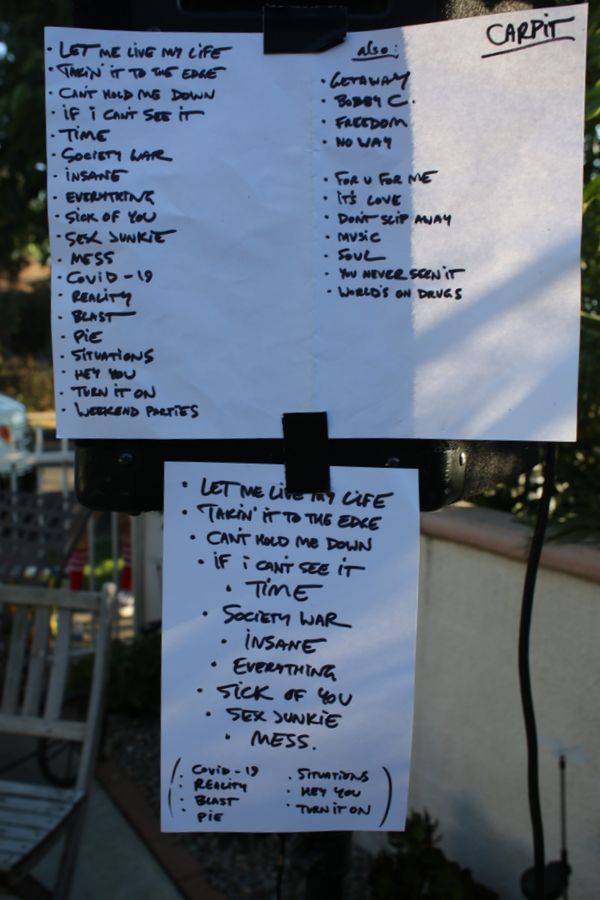 CARPIT
• LET ME LIVE MY LIFE
• TAKIN' IT TO THE EDGE
• CAN'T HOLD ME DOWN
• IF I CAN'T SEE IT
• TIME
• SOCIETY WAR
• INSANE
• EVERYTHING
• SICK OF YOU
• SEX JUNKIE
• MESS
• COVID-19
• REALITY
• BLAST
• PIE
• SITUATIONS
• HEY YOU
• TURN IT ON
• WEEKEND PARTIES
also:
• GETAWAY
• BOBBY C.
• FREEDOM
• NO WAY
• FOR U FOR ME
• IT'S LOVE
• DON'T SLIP AWAY
• MUSIC
• SOUL
• YOU NEVER SEEN IT
• WORLD'S ON DRUGS
• LET ME LIVE MY LIFE
• TAKIN' IT TO THE EDGE
• CAN'T HOLD ME DOWN
• IF I CAN'T SEE IT
• TIME
• SOCIETY WAR
• INSANE
• EVERYTHING
• SICK OF YOU
• SEX JUNKIE
• MESS.
(• COVID-19
• REALITY
• BLAST
• PIE
• SITUATIONS
• HEY YOU
• TURN IT ON)